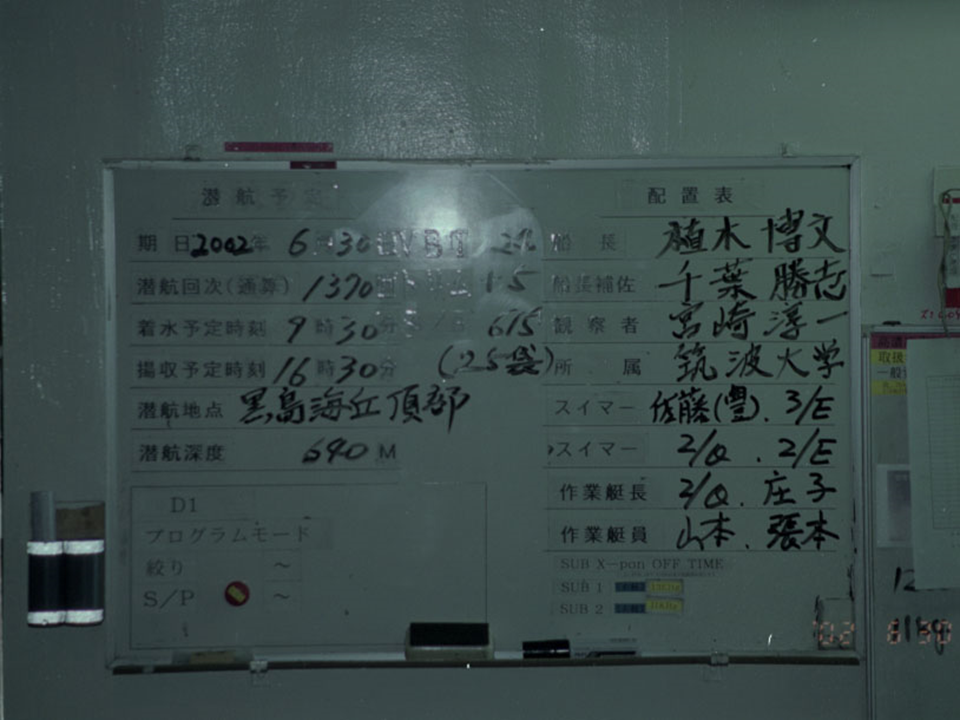 潜航予定
期日 2002年 6月30日
潜航回次(通算) 1370回
着水予定時刻 9時30分 675
揚収予定時刻 16時30分 (25袋)
潜航地点 黒島海丘頂部
潜航深度 640 M
D1
プログラムモード
絞り ～
S/P ～
配置表
船長 植木博文
船長補佐 千葉勝志
観察者 宮崎淳一
所属 筑波大学
スイマー 佐藤(豊). 3/E
スイマー 2/Q . 2/E
作業艇長 2/Q. 庄子
作業艇員 山本. 張本
SUB X-pon OFF TIME
SUB 1
SUB 2